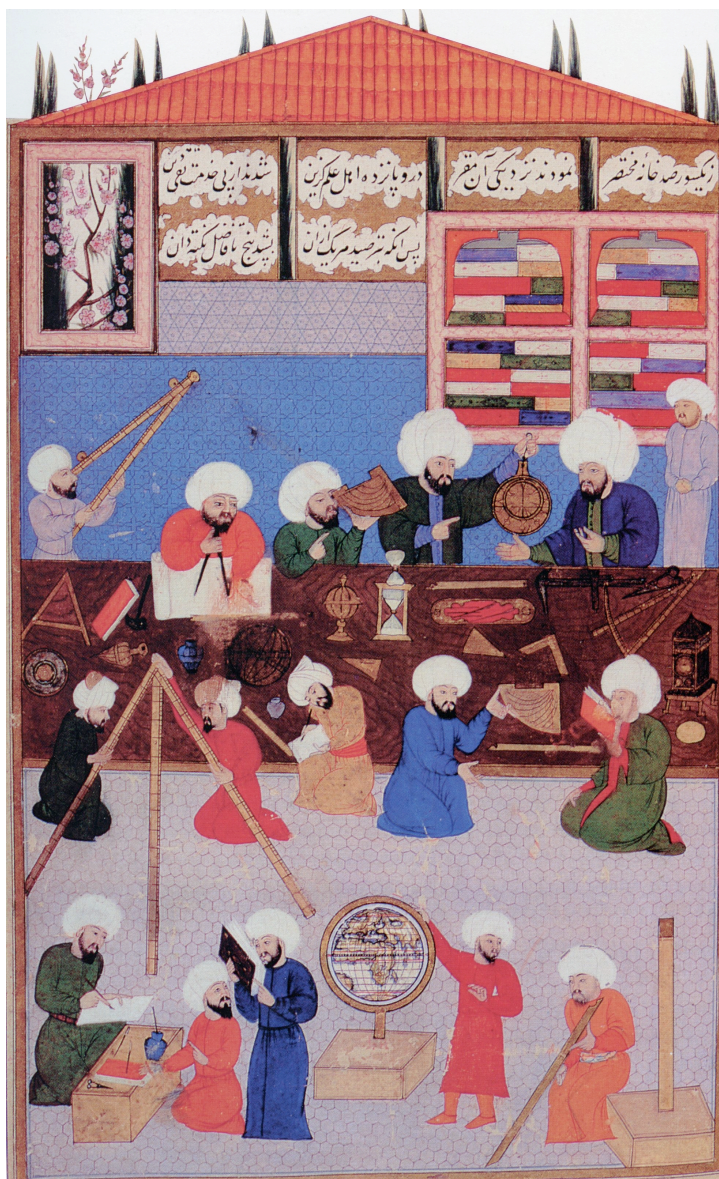 ز یکسو رصد خانه مختصر نمودند نزدیکی آن مقر درو پانزده اهل علم گزین شدند از پی خدمت تقی دین
پس انکه هر یک ازان بشد پنج با فاضل نکته دان